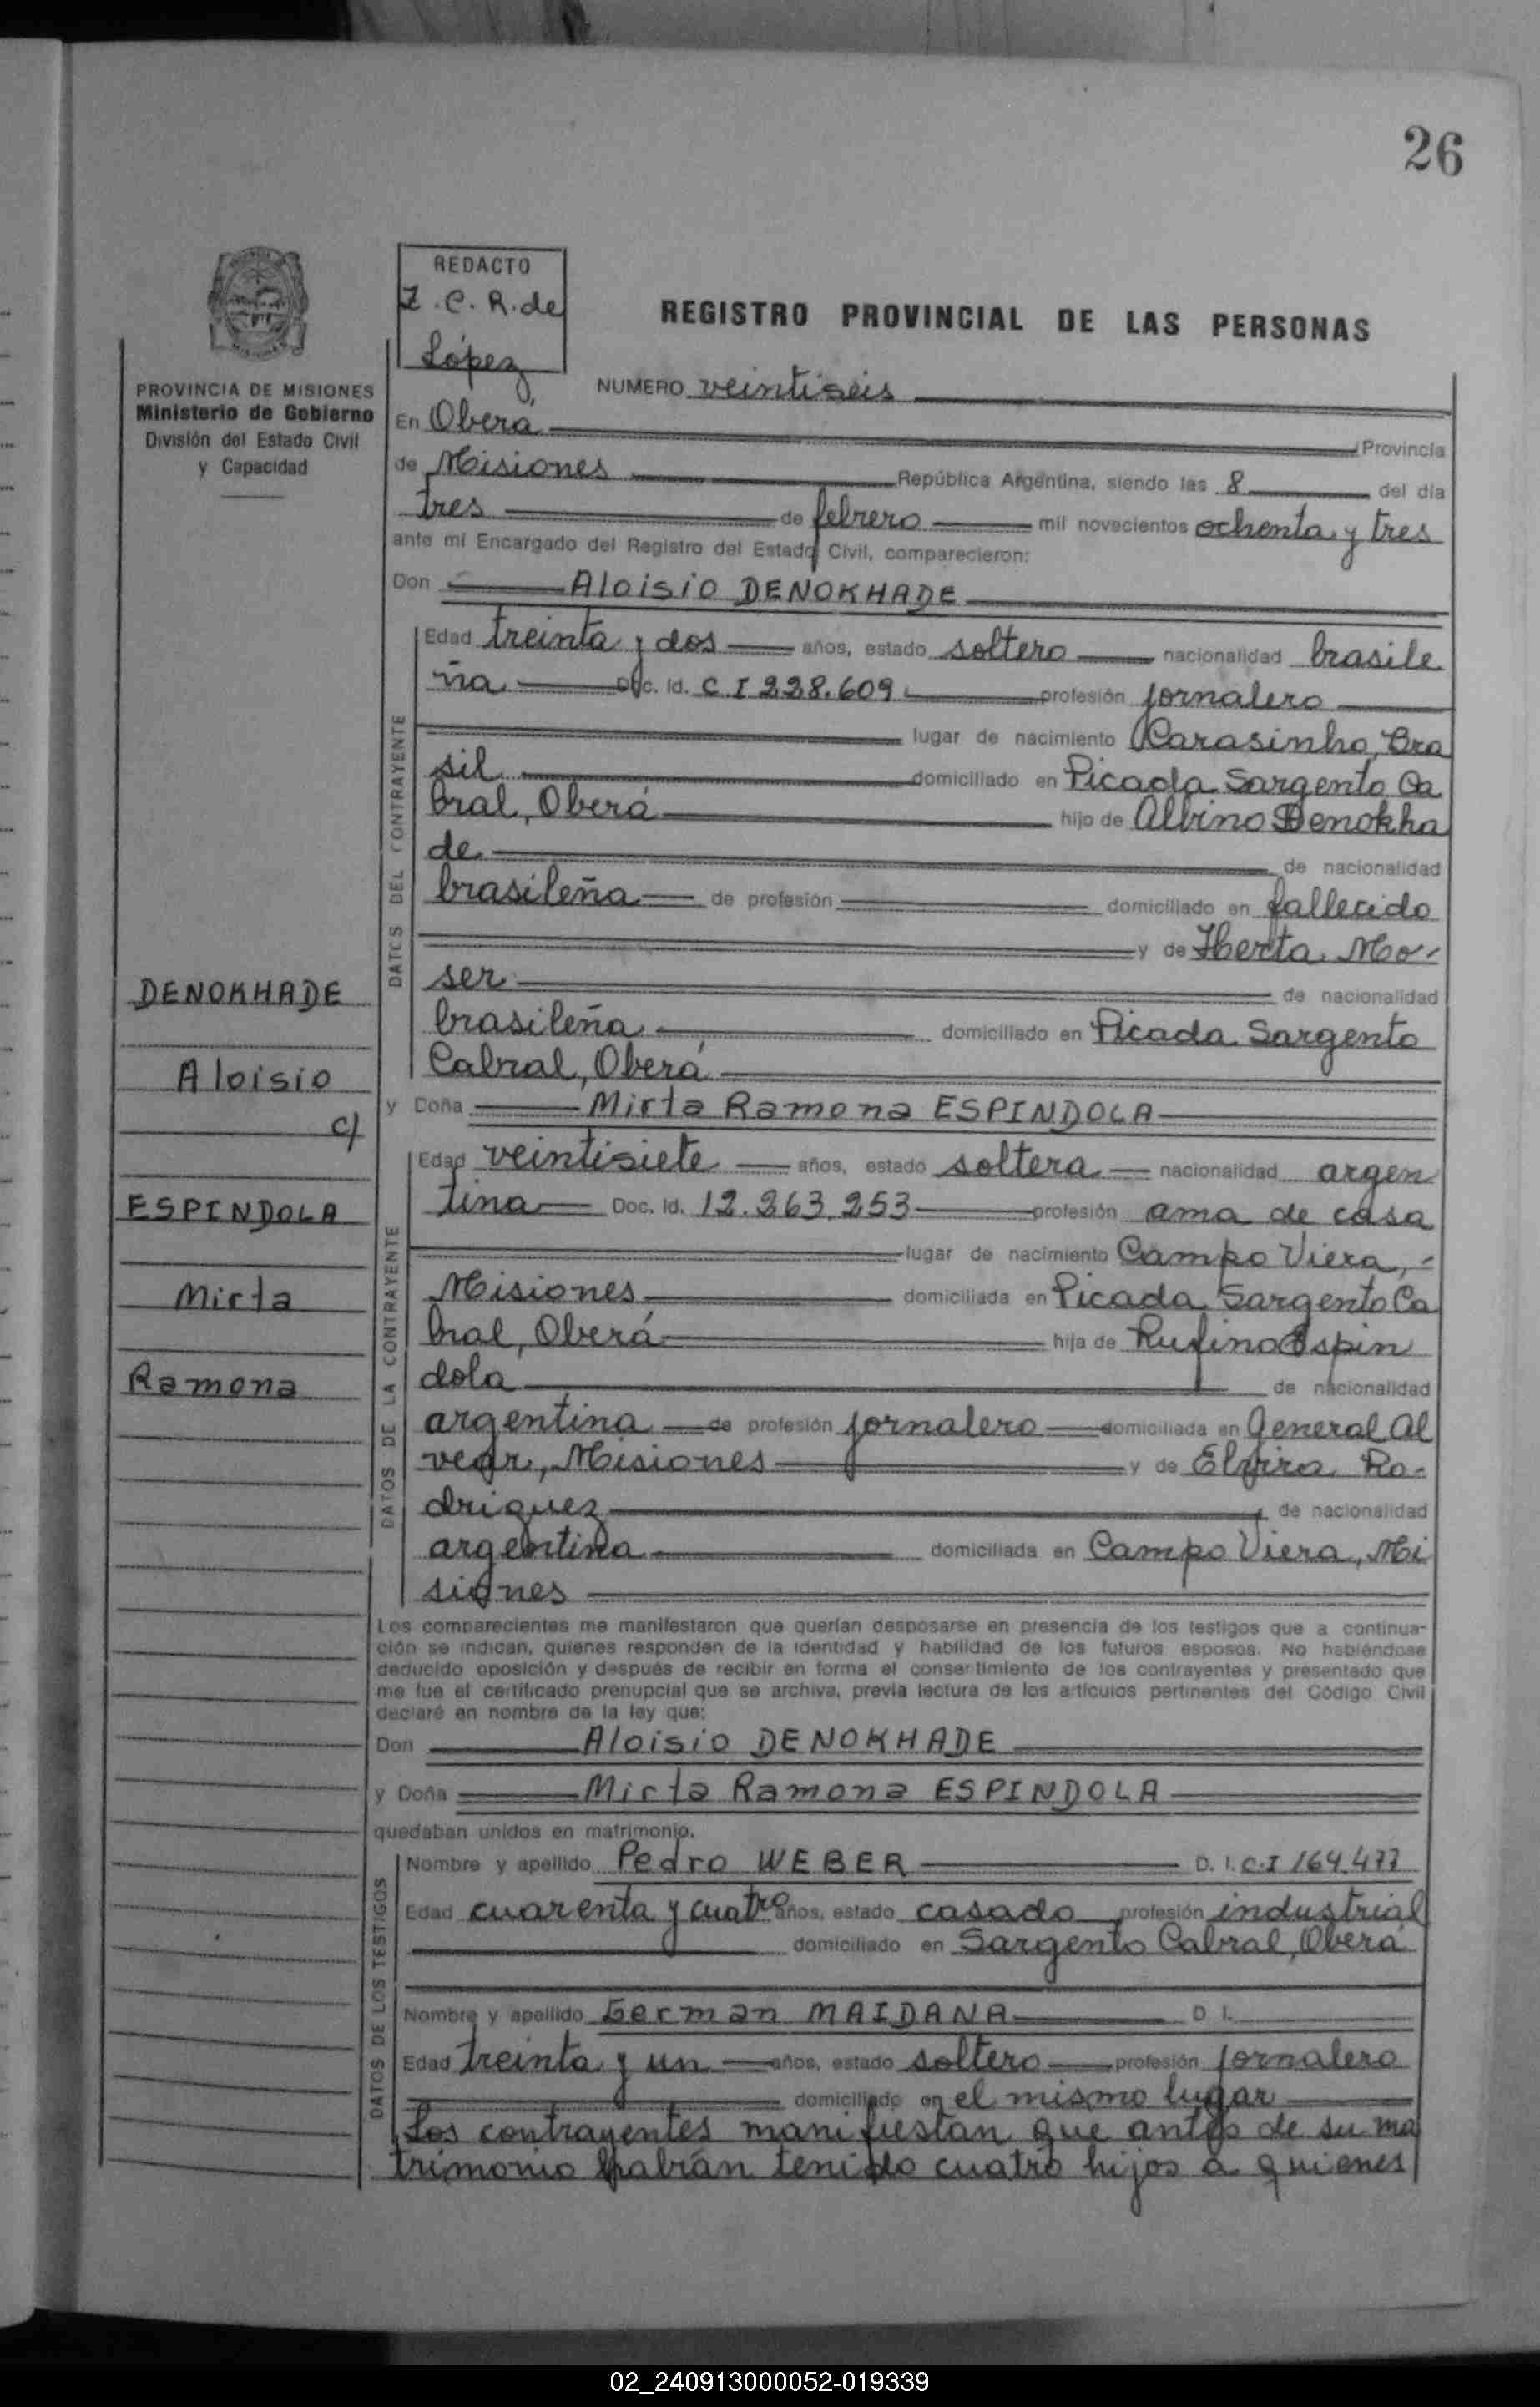 26
REDACTO
Z. C. R. de
López
REGISTRO PROVINCIAL DE LAS PERSONAS
PROVINCIA DE MISIONES
Ministerio de Gobierno
División del Estado Civil
y Capacidad
NUMERO veintiseis
En Oberá Provincia
de Misiones República Argentina, siendo las 8 del día
tres de febrero mil novecientos ochenta y tres
ante mí Encargado del Registro del Estado Civil, comparecieron:
Don Aloisio DENOKHADE
Edad treinta y dos años, estado soltero nacionalidad brasile
ña Doc. Id. C I 228.609 profesión jornalero
lugar de nacimiento Carasinho, Bra
sil domiciliado en Picada Sargento Ca
bral, Oberá hijo de Albino Denokha
de de nacionalidad
brasileña de profesión domiciliado en fallecido
y de Herta Mo-
ser de nacionalidad
brasileña domiciliado en Picada Sargento
Cabral, Oberá
DATOS DEL CONTRAYENTE
DENOKHADE
Aloisio
c/
ESPINDOLA
Mirta
Ramona
y Doña Mirta Ramona ESPINDOLA
Edad veintisiete años, estado soltera nacionalidad argen
tina Doc. Id. 12.263.253 profesión ama de casa
lugar de nacimiento Campo Viera, -
Misiones domiciliada en Picada Sargento Ca
bral, Oberá hija de Rufino Espin
dola de nacionalidad
argentina de profesión jornalero domiciliada en General Al
vear, Misiones y de Elvira Ro-
driguez de nacionalidad
argentina domiciliada en Campo Viera, Mi
siones
DATOS DE LA CONTRAYENTE
Los comparecientes me manifestaron que querían desposarse en presencia de los testigos que a continua-
ción se indican, quienes responden de la identidad y habilidad de los futuros esposos. No habiéndose
deducido oposición y después de recibir en forma el consentimiento de los contrayentes y presentado que
me fue el certificado prenupcial que se archiva, previa lectura de los artículos pertinentes del Código Civil
declaré en nombre de la ley que:
Don Aloisio DENOKHADE
y Doña Mirta Ramona ESPINDOLA
quedaban unidos en matrimonio.
Nombre y apellido Pedro WEBER D. I. C.I 164.477
Edad cuarenta y cuatro años, estado casado profesión industrial
domiciliado en Sargento Cabral, Oberá
Nombre y apellido German MAIDANA D I.
Edad treinta y un años, estado soltero profesión jornalero
domiciliado en el mismo lugar
DATOS DE LOS TESTIGOS
Los contrayentes manifiestan que antes de su ma
trimonio habían tenido cuatro hijos a quienes
02_240913000052-019339